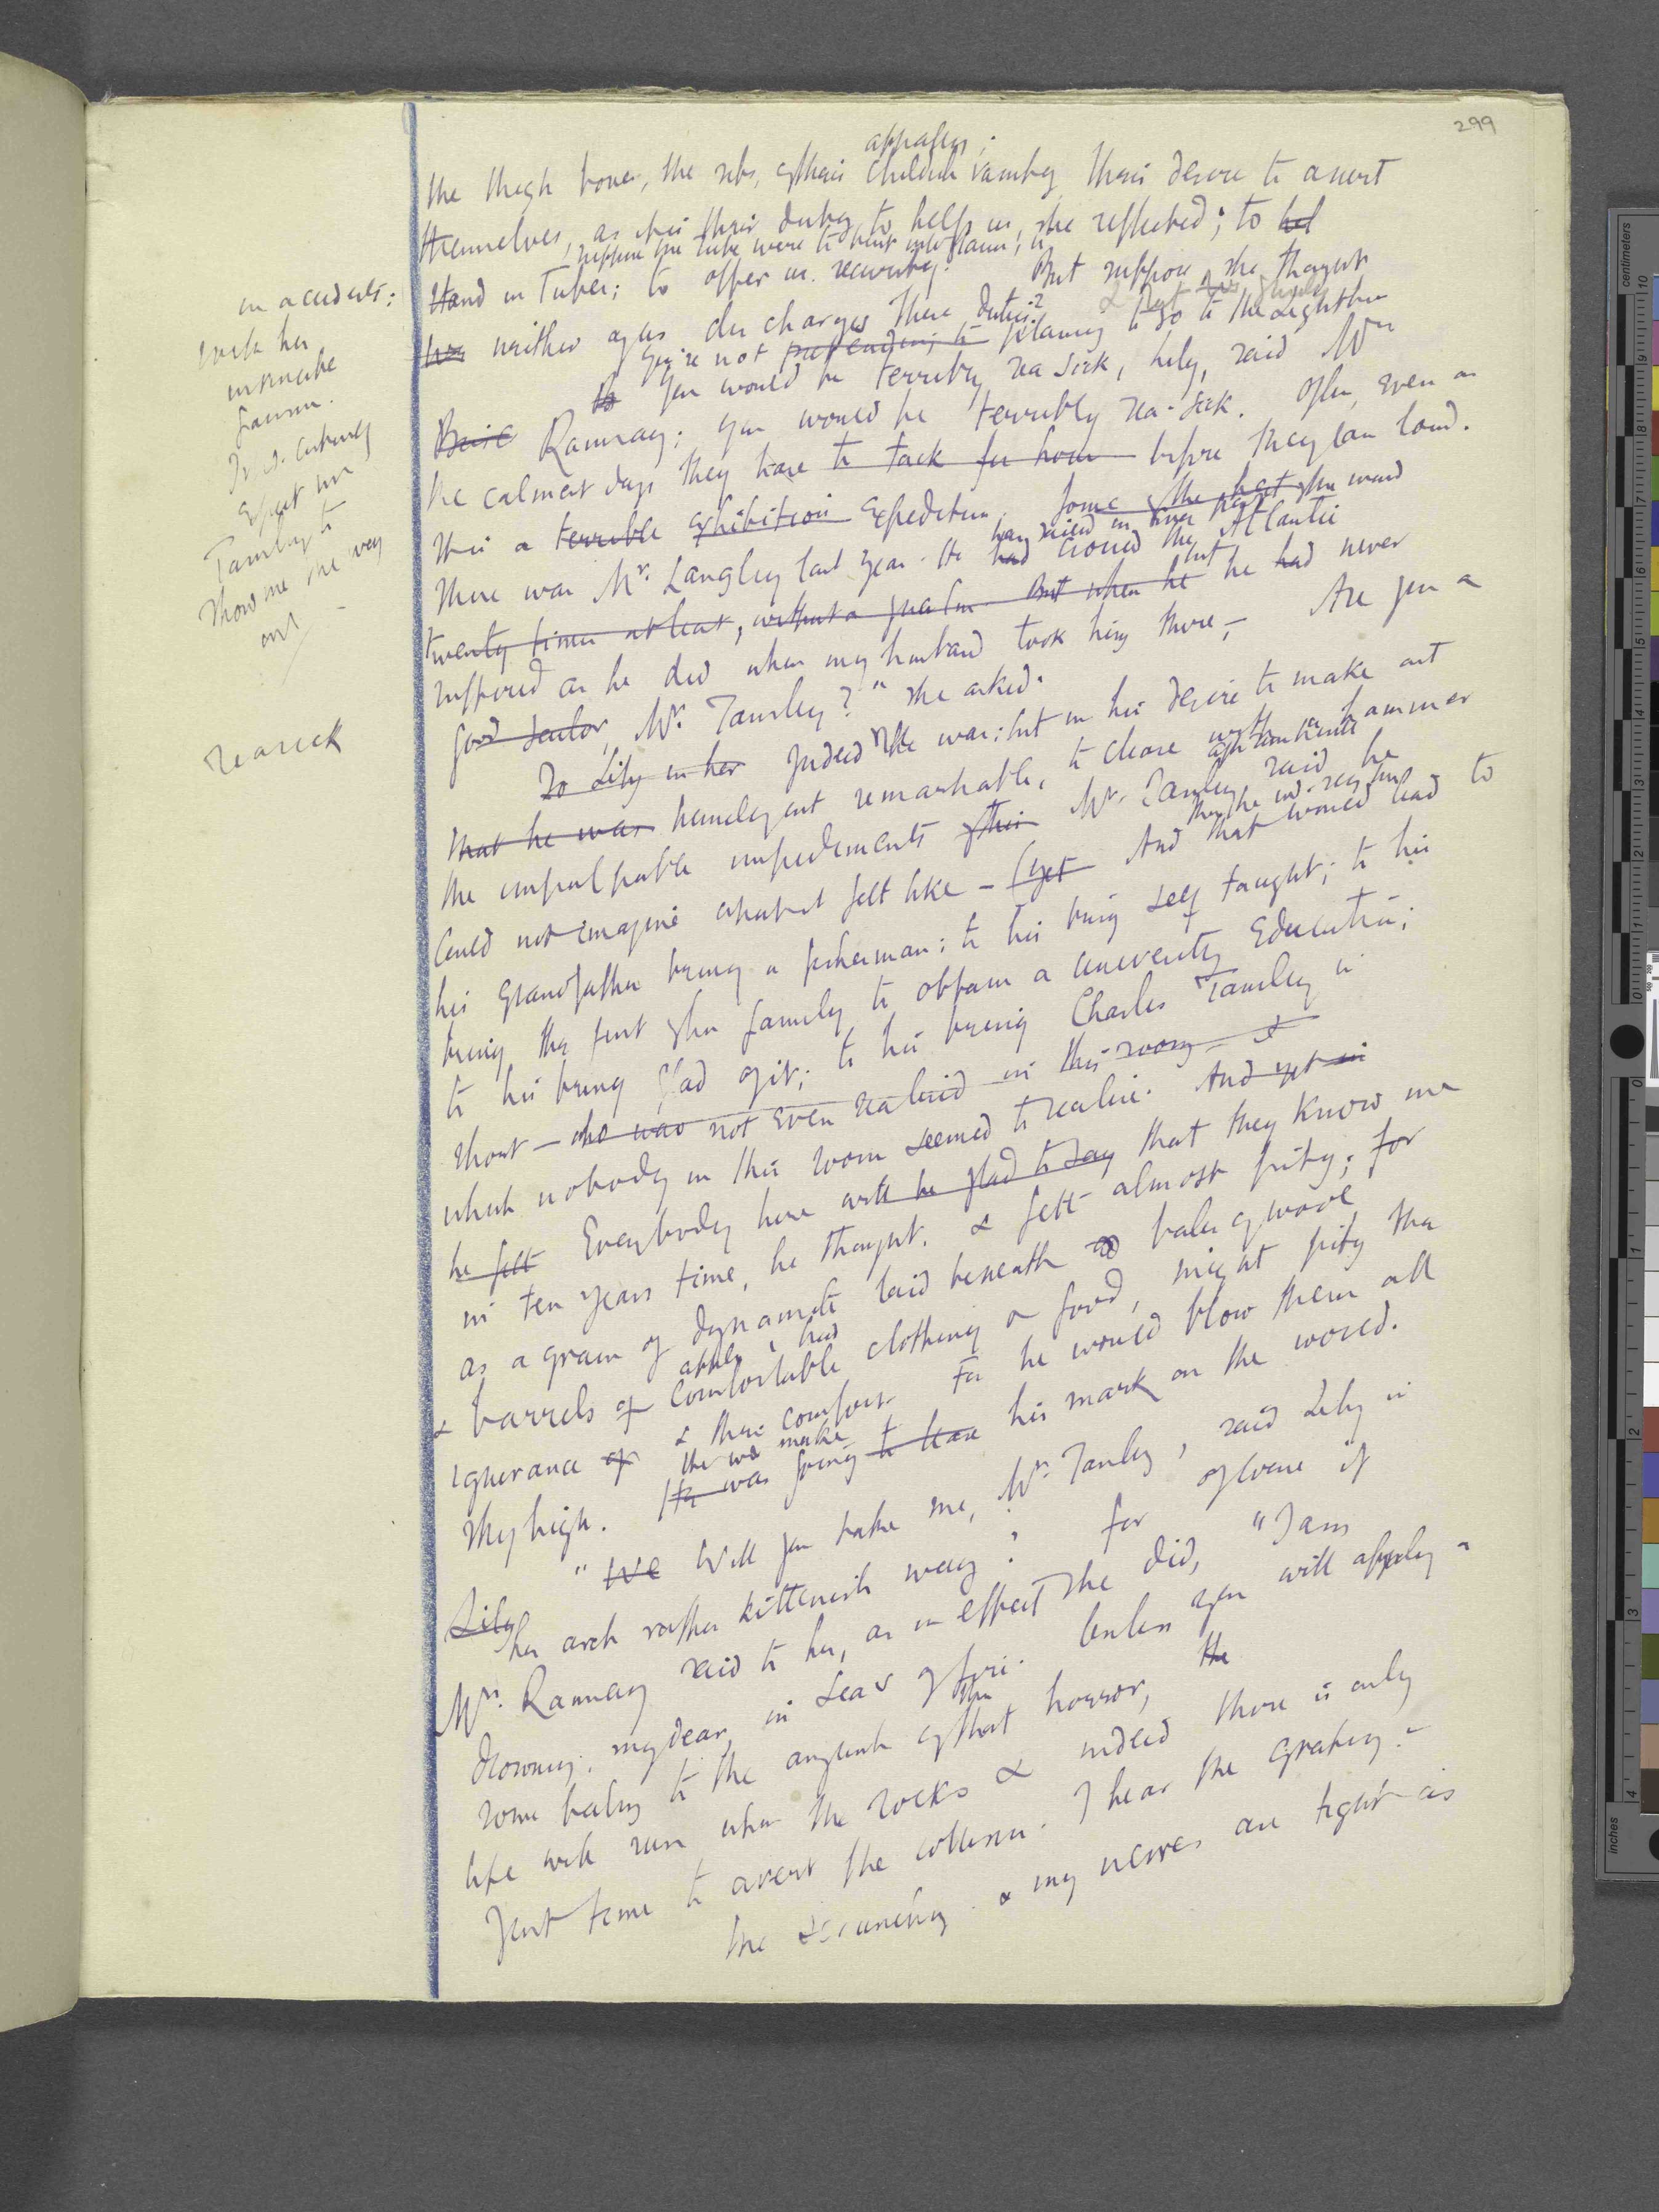 299
appalling;
the thigh bones, the ribs, of their childish vanity their desire to assert
themselves, as it is their duty to help us, she reflected; to hel
suppose the tube were to burst into flames;
stand in Tubes; to offer us security. But suppose, she thought
neither of us discharges these duties?
You're not pretending to planning to go to the Lighthouse
You would be terribly sea sick, Lily, said Mrs
Ramsay; you would be terribly sea-sick. Often, even on
the calmest days they have to tack for hours before they can land.
It is a terrible exhibition expedition. Some of the best of the
There was Mr. Langley last year. He had crossed the Atlantic
twenty times at least, without a qualm. But when he he had never
suffered as he did when my husband took him there, – Are you a
good sailor, Mr. Tansley?" she asked.
To Lily in her Indeed he was; but in his desire to make out
that he was remarkable, to cleave with a hammer
the impalpable impediments of this Mr. Tansley said he
could not imagine what it felt like – (yet And that would lead to
his grandfather being a fisherman; to his being self taught; to his
being the first of his family to obtain a university education;
to his being glad of it; to his being Charles Tansley in
short – who was not even realised in this room – &
which nobody in this room seemed to realise. And yet in
he felt Everybody here will be glad to say that they know me
in ten years time, he thought. & felt almost pity; for
as a grain of dynamite laid beneath bales of wool
& barrels of apples,
comfortable clothing or food, might pity the
ignorance of & their comfort. For he would blow them all
sky high. He was going to leave make his mark on the world.
"We Will you take me, Mr. Tansley, said Lily in
Lily her arch rather kittenish way? for of course if
Mrs. Ramsay said to her, as in effect she did, "I am
drowning, my dear, in seas of fire. Unless you will apply
some balm to the anguish of that horror, the
life will run upon the rocks & indeed there is only
just time to avert the collision. I hear the grating –
the scrunching & my nerves are tight as
in accidents:
with her
miniature
Tansley to
show me the way
out –
seasick